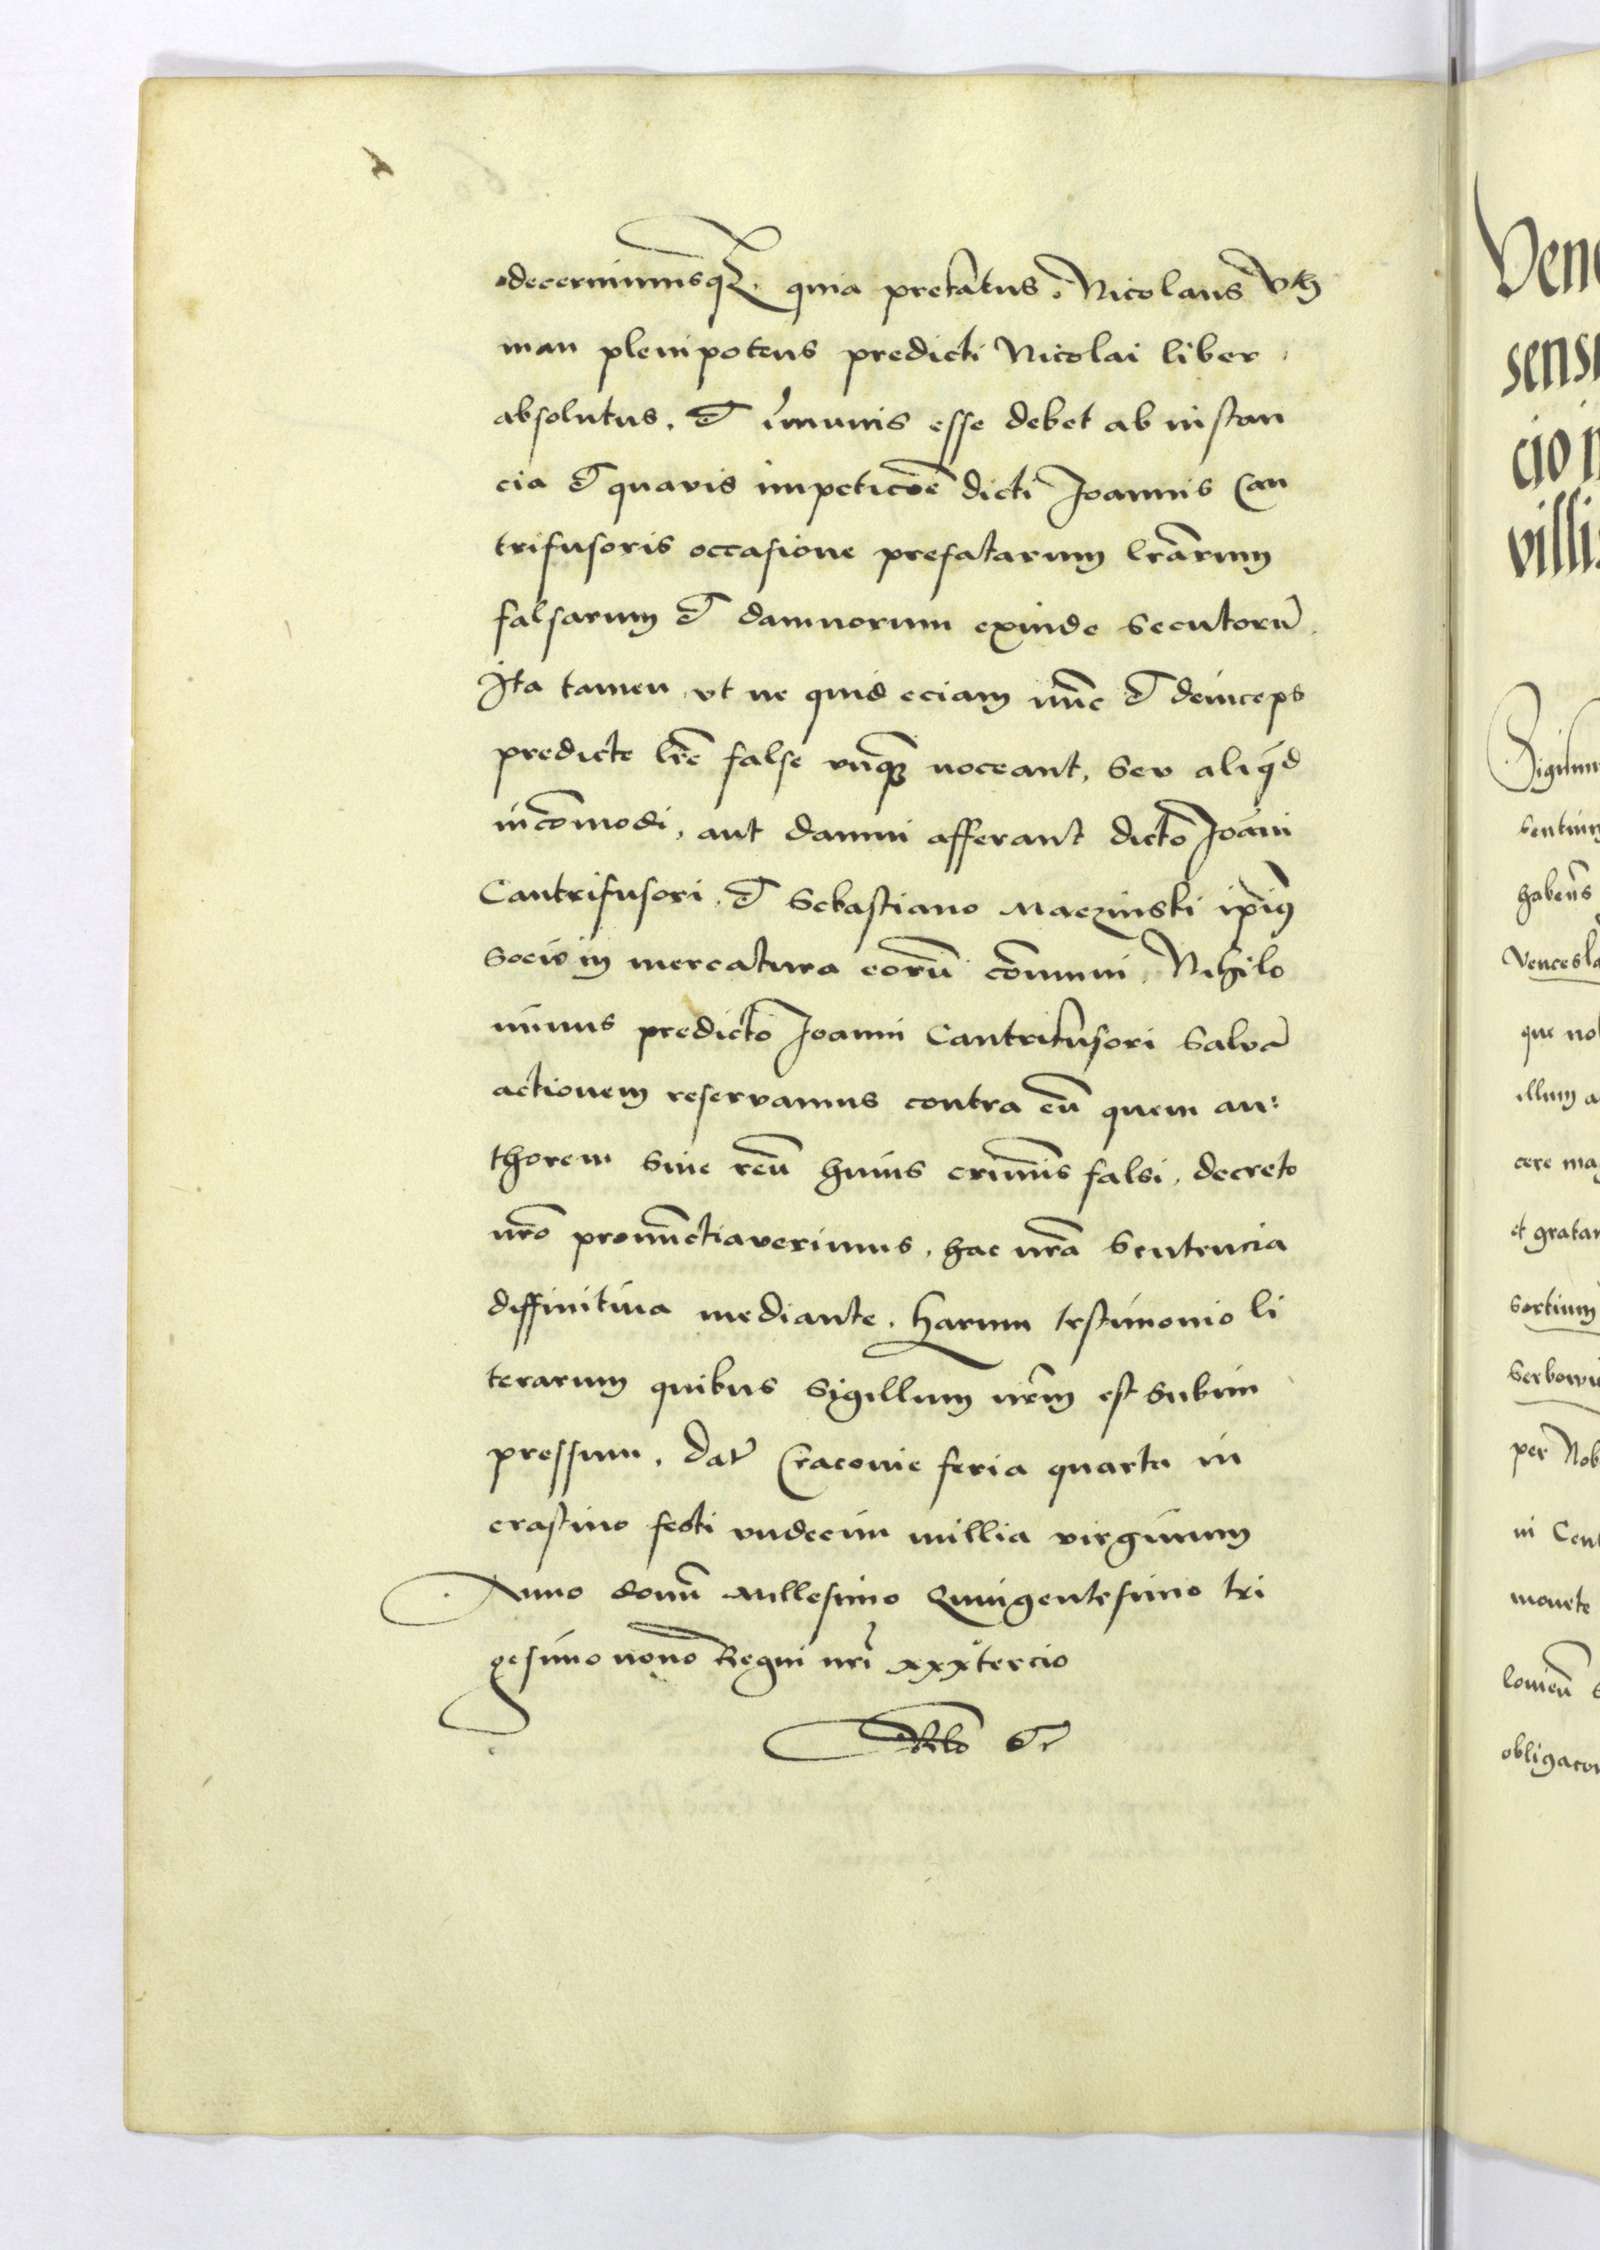 decernimusqꝫ. quia prefatus. Nicolaus Vh
man plenipotens predicti Nicolai liber.
absolutus. et īmunis esse debet ab instan
cia et quavis impeticōe dicti Joannis Can
trifusoris occasione prefatarum lrārum
falsarum et damnorum exinde secutorū.
Ita tamen vt ne quid eciam nūc et deinceps
predicte lrē false vnq̄ noceant, seu aliqd
incōmodi, aut damni afferant dicto Joāni
Cantrifusori. et Sebastiano Maczinski ipiꝰ
socio in mercatura eorū cōmuni. Nihilo
minus predicto Joanni Cantrifusori salvā
actionem reservamus contra eū quem au:
thorem sive reū huius criminis falsi, decreto
nr̄o pronūctiaverimus. hac nrā sentencia
diffinitiva mediante. Harum testimonio li
terarum quibus sigillum nr̄m est subim
pressum. Dat Cracovie feria quarta in
crastino festi vndecim millia virginum
Anno domī millesimo Quingentesimo tri
gesimo nono Regni nrī xxxtercio
Vene
sensu
cio
villis
Sigismu
habens
Vencesla
que nob
illum a
cere mag
et gratam
Sortium
Serbowi
per Nob
in Cent
monete
obligacon